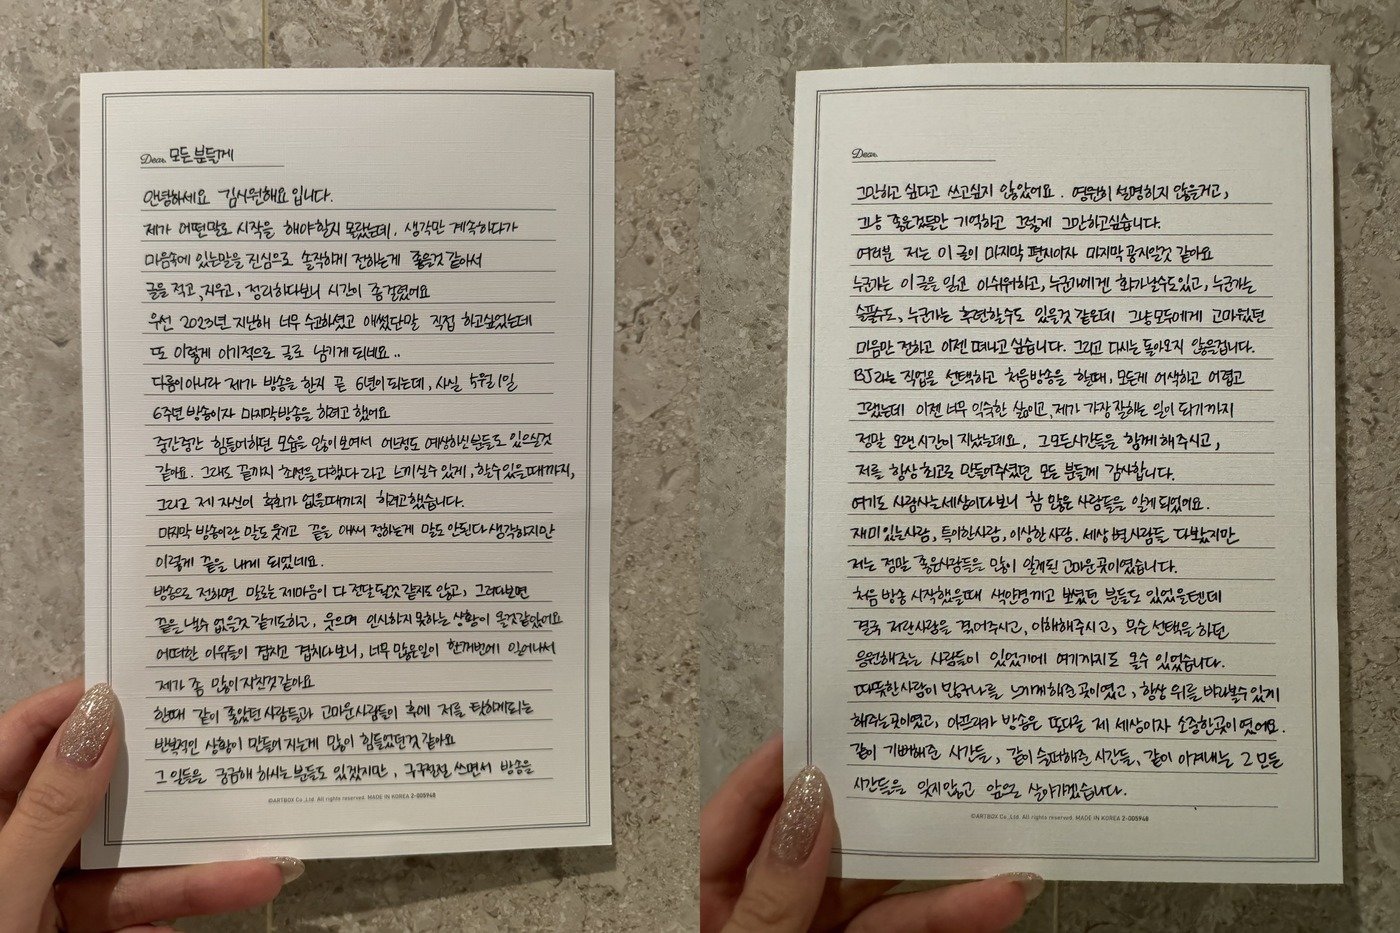 Dear. 모든 분들께
안녕하세요 김시원해요 입니다.
제가 어떤말로 시작을 해야할지 몰랐는데, 생각만 계속하다가
마음속에 있는말을 진심으로 솔직하게 전하는게 좋을것 같아서
글을 적고, 지우고, 정리하다보니 시간이 좀 걸렸어요
우선 2023년 지난해 너무 수고하셨고 애썼단말 직접 하고싶었는데
또 이렇게 이기적으로 글로 남기게 되네요..
다름이아니라 제가 방송을 한지 곧 6년이 되는데, 사실 5월1일
6주년 방송이자 마지막방송을 하려고 했어요
중간중간 힘들어하던 모습을 많이 보여서 어느정도 예상하신분들도 있으실것
같아요. 그래도 끝까지 최선을 다했다 라고 느끼실수 있게, 할수있을때까지,
그리고 제 자신이 후회가 없을때까지 하려고했습니다.
마지막 방송이란 말도 웃기고 끝을 애써 정하는게 말도 안된다 생각하지만
이렇게 끝을 내게 되었네요.
방송으로 전하면 말로는 제마음이 다 전달될것 같지도 않고, 그러다보면
끝을 낼수 없을것 같기도하고, 웃으며 인사하지 못하는 상황이 올것같았어요
어떠한 이유들이 겹치고 겹치다보니, 너무 많은일이 한꺼번에 일어나서
제가 좀 많이 지친것같아요
한때 같이 좋았던 사람들과 고마운사람들이 후에 저를 탓하게되는
반복적인 상황이 만들어 지는게 많이 힘들었던것 같아요
그 일들을 궁금해 하시는 분들도 있겠지만, 구구절절 쓰면서 방송을
©ARTBOX Co.,Ltd. All rights reserved. MADE IN KOREA 2-005948
Dear.
그만하고 싶다고 쓰고싶지 않았어요. 영원히 설명하지 않을거고,
그냥 좋은것들만 기억하고 그렇게 그만하고싶습니다.
여러분 저는 이 글이 마지막 편지이자 마지막 공지일것 같아요
누군가는 이 글을 읽고 아쉬워하고, 누군가에겐 화가날수도있고, 누군가는
슬플수도, 누군가는 후련할수도 있을것 같은데 그냥 모두에게 고마웠던
마음만 전하고 이젠 떠나고 싶습니다. 그리고 다시는 돌아오지 않을겁니다.
BJ라는 직업을 선택하고 처음방송을 할때, 모든게 어색하고 어렵고
그랬는데 이젠 너무 익숙한 삶이고, 제가 가장 잘하는 일이 되기까지
정말 오랜 시간이 지났는데요, 그모든시간들을 함께 해주시고,
저를 항상 최고로 만들어주셨던 모든 분들께 감사합니다.
여기도 사람사는 세상이다 보니 참 많은 사람들을 알게 되었어요.
재미있는사람, 특이한사람, 이상한 사람, 세상 별 사람들 다봤지만
저는 정말 좋은사람들을 많이 알게된 고마운 곳이였습니다.
처음 방송 시작했을때 색안경끼고 보셨던 분들도 있었을텐데
결국 저란사람을 겪어주시고, 이해해주시고, 무슨 선택을 하던
응원해주는 사람들이 있었기에 여기까지도 올수 있었습니다.
따뜻한사람이 많구나를 느끼게 해준 곳이였고, 항상 위를 바라볼수 있게
해주는곳이였고, 아프리카 방송은 또다른 제 세상이자 소중한곳이 였어요.
같이 기뻐해준 시간들, 같이 슬퍼해준 시간들, 같이 이겨내는 그 모든
시간들을 잊지않고 앞으로 살아가겠습니다.
©ARTBOX Co.,Ltd. All rights reserved. MADE IN KOREA 2-005948